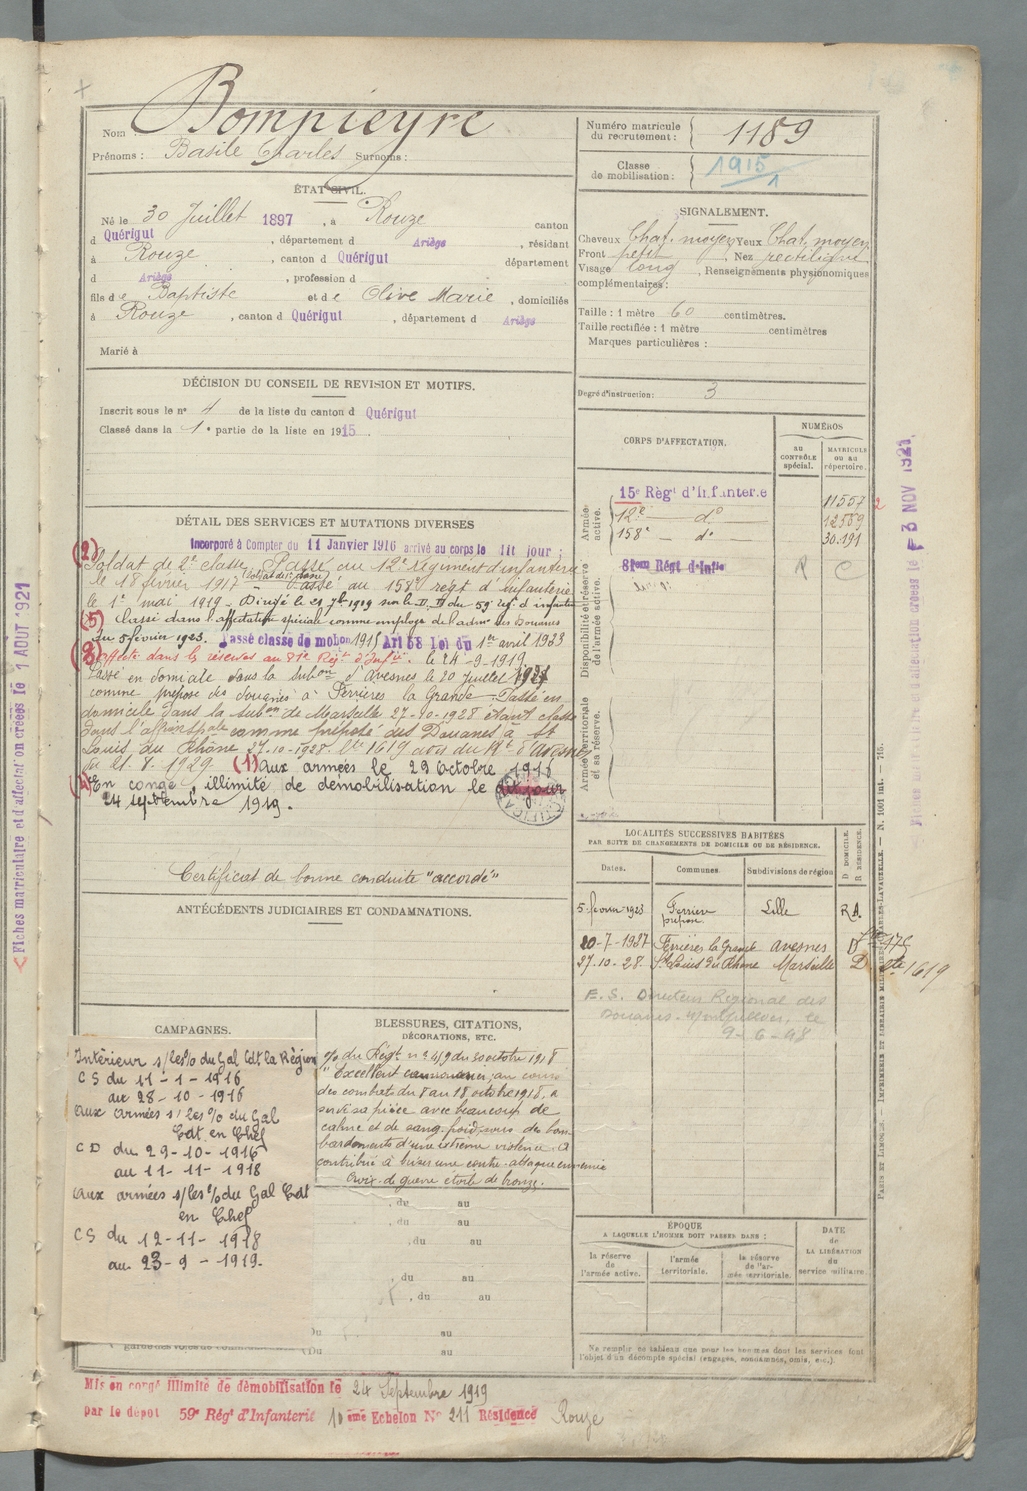 Nom Bompieyre
Prénoms : Basile Charles Surnoms :
ÉTAT CIVIL.
Né le 30 Juillet 1897, à Rouze canton
d Quérigut, département d Ariège, résidant
à Rouze, canton d Quérigut département
d Ariège, profession d
fils de Baptiste et de Olive Marie, domiciliés
à Rouze, canton d Quérigut, département d Ariège
Marié à
DÉCISION DU CONSEIL DE REVISION ET MOTIFS.
Inscrit sous le no 4 de la liste du canton d Quérigut
Classé dans la 1e partie de la liste en 1915.
DÉTAIL DES SERVICES ET MUTATIONS DIVERSES
Incorporé à Compter du 11 Janvier 1916 arrivé au corps le dit jour ;
(2) Soldat de 2e classe. Passé au 12e régiment d'infanterie
le 18 février 1917 (Soldat de 1e classe) Passé au 158e regt d'infanterie
le 1er mai 1919. Dirigé le 21 7bre 1919 sur le D. D du 59e regt d'infanterie
(5) Classé dans l'affectation spéciale comme employé de l'admon des Douanes
du 5 février 1923. Passé classe de mobon 1915 Art 58 Loi du 1er avril 1923
(3) Affecté dans la réserve au 81e Régt d'Infie. le 24-9-1919
Passé en domicile dans la subon d'Avesnes le 20 juillet 1927
comme préposé des douanes à Ferrières la Grande. Passé en
domicile dans la subon de Marseille 27-10-1928 étant classé
dans l'affon spale comme préposé des Douanes à St
Louis du Rhône 27-10-1928 lte 1619 avis du Rt d'Avesnes
du 21.8.1929 (1) Aux armées le 29 Octobre 1916
(4) En congé illimité de démobilisation le dit jour
24 septembre 1919.
Certificat de bonne conduite "accordé"
ANTÉCÉDENTS JUDICIAIRES ET CONDAMNATIONS.
CAMPAGNES.
Intérieur s/les % du Gal Cdt la Région
CS du 11-1-1916
au 28-10-1916
Aux armées s/les % du Gal
Cdt en Chef
CD du 29-10-1916
au 11-11-1918
Aux armées s/les % du Gal Cdt
en Chef
CS du 12-11-1918
au 23-9-1919.
BLESSURES, CITATIONS,
DÉCORATIONS, ETC.
% du Régt no 419 du 30 octobre 1918
"Excellent canonnier, au cours
des combats du 8 au 18 octobre 1918, a
servi sa pièce avec beaucoup de
calme et de sang-froid, sous des bom
bardements d'une extrême violence. A
contribué à briser une contre-attaque ennemie
Croix de guerre étoile de bronze.
, du au
, du au
, du au
, du au
, du au
Du au
Du au
Mis en congé illimité de démobilisation le 24 Septembre 1919
par le dépot 59e Régt d'Infanterie 10ème Echelon No 211 Résidence Rouze
Numéro matricule
du recrutement : 1189
Classe
de mobilisation : 1915
1
SIGNALEMENT.
Cheveux Chat. moyen Yeux Chat. moyen
Front petit, Nez rectiligne
Visage long, Renseignements physionomiques
complémentaires :
Taille : 1 mètre 60 centimètres.
Taille rectifiée : 1 mètre centimètres
Marques particulières :
Degré d'instruction : 3
CORPS D'AFFECTATION.
NUMÉROS
AU CONTRÔLE spécial.
MATRICULE OU AU répertoire.
Armée active.
15e Régt d'Infanterie 11557
12e do 12569
158e do 30.191
Disponibilité et réserve de l'armée active.
81eme Régt d'Infie R C
Armée territoriale et sa réserve.
LOCALITÉS SUCCESSIVES HABITÉES
PAR SUITE DE CHANGEMENTS DE DOMICILE OU DE RÉSIDENCE.
Dates. Communes. Subdivisions de région D DOMICILE. R RÉSIDENCE.
5 février 1923 Ferrière préposé Lille R A.
20-7-1927 Ferrières la Grande Avesnes D
27.10.28. St Louis du Rhône Marseille D. lte 1619
F. S. Directeur Régional des
Douanes. Montpellier, le
9-6-48
ÉPOQUE
A LAQUELLE L'HOMME DOIT PASSER DANS :
la réserve de l'armée active.
l'armée territoriale.
la réserve de l'armée territoriale.
DATE de LA LIBÉRATION du service militaire.
Ne remplir ce tableau que pour les hommes dont les services font
l'objet d'un décompte spécial (engagés, condamnés, omis, etc.).
Fiches matriculaire et d'affectation créées le 1 AOUT 1921
Fiches matriculaire et d'affectation créées le 3 NOV 1921
PARIS ET LIMOGES. — IMPRIMERIE ET LIBRAIRIE MILITAIRES CHARLES-LAVAUZELLE. — N. 1001 int. — 715.